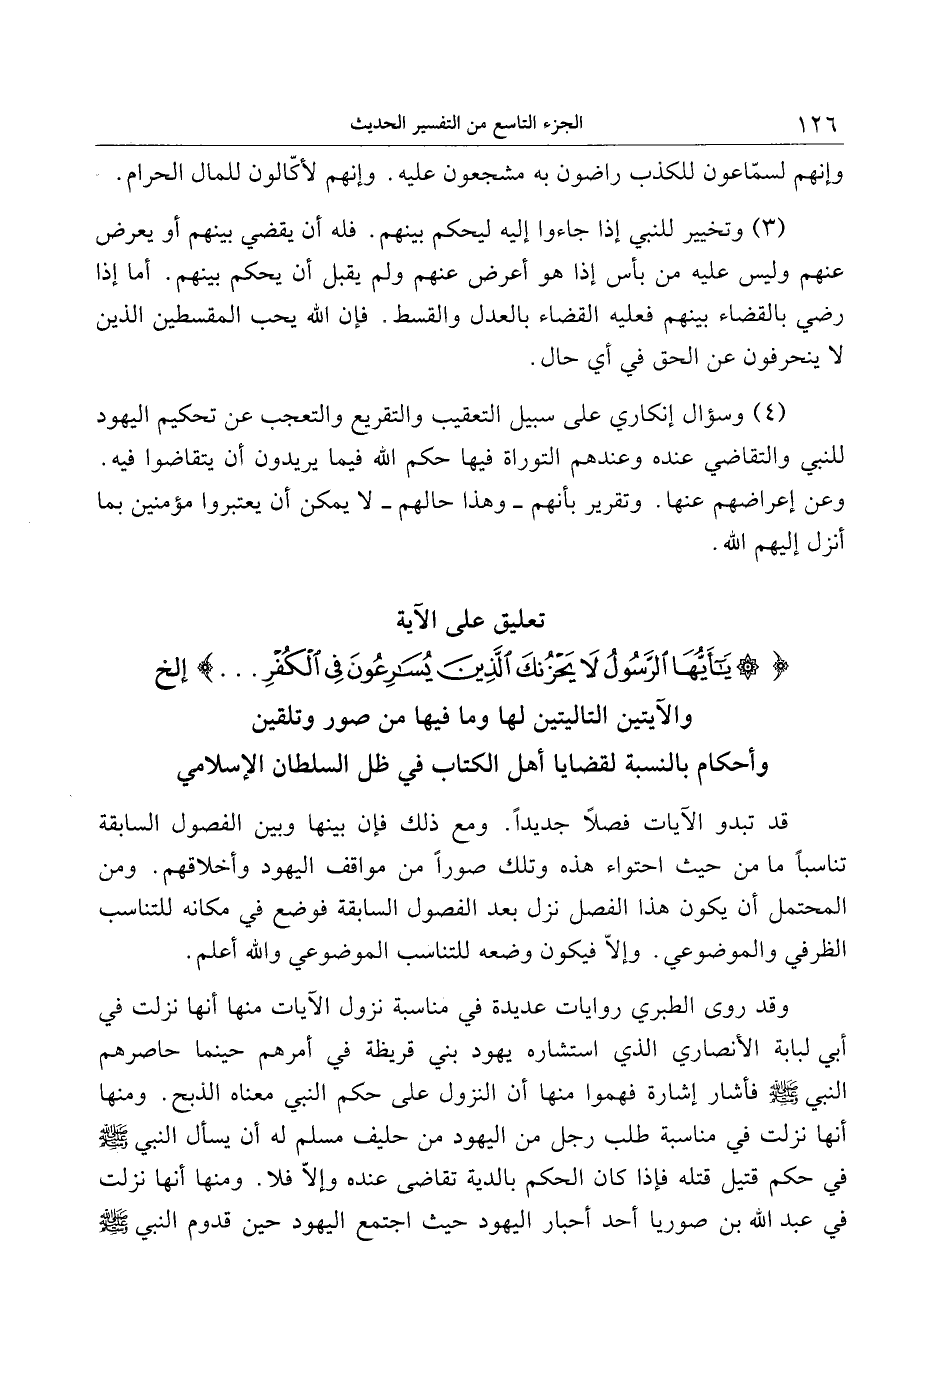 ١٢٦ الجزء التاسع من التفسير الحديث
وإنهم لسمّاعون للكذب راضون به مشجعون عليه. وإنهم لأكّالون للمال الحرام.
(٣) وتخيير للنبي إذا جاءوا إليه ليحكم بينهم. فله أن يقضي بينهم أو يعرض
عنهم وليس عليه من بأس إذا هو أعرض عنهم ولم يقبل أن يحكم بينهم. أما إذا
رضي بالقضاء بينهم فعليه القضاء بالعدل والقسط. فإن الله يحب المقسطين الذين
لا ينحرفون عن الحق في أي حال.
(٤) وسؤال إنكاري على سبيل التعقيب والتقريع والتعجب عن تحكيم اليهود
للنبي والتقاضي عنده وعندهم التوراة فيها حكم الله فيما يريدون أن يتقاضوا فيه.
وعن إعراضهم عنها. وتقرير بأنهم ـ وهذا حالهم ـ لا يمكن أن يعتبروا مؤمنين بما
أنزل إليهم الله.
تعليق على الآية
﴿ ۞ يَـٰٓأَيُّهَا ٱلرَّسُولُ لَا يَحۡزُنكَ ٱلَّذِينَ يُسَـٰرِعُونَ فِي ٱلۡكُفۡرِ . . . ﴾ إلخ
والآيتين التاليتين لها وما فيها من صور وتلقين
وأحكام بالنسبة لقضايا أهل الكتاب في ظل السلطان الإسلامي
قد تبدو الآيات فصلاً جديداً. ومع ذلك فإن بينها وبين الفصول السابقة
تناسباً ما من حيث احتواء هذه وتلك صوراً من مواقف اليهود وأخلاقهم. ومن
المحتمل أن يكون هذا الفصل نزل بعد الفصول السابقة فوضع في مكانه للتناسب
الظرفي والموضوعي. وإلاّ فيكون وضعه للتناسب الموضوعي والله أعلم.
وقد روى الطبري روايات عديدة في مناسبة نزول الآيات منها أنها نزلت في
أبي لبابة الأنصاري الذي استشاره يهود بني قريظة في أمرهم حينما حاصرهم
النبي ﷺ فأشار إشارة فهموا منها أن النزول على حكم النبي معناه الذبح. ومنها
أنها نزلت في مناسبة طلب رجل من اليهود من حليف مسلم له أن يسأل النبي ﷺ
في حكم قتيل قتله فإذا كان الحكم بالدية تقاضى عنده وإلاّ فلا. ومنها أنها نزلت
في عبد الله بن صوريا أحد أحبار اليهود حيث اجتمع اليهود حين قدوم النبي ﷺ